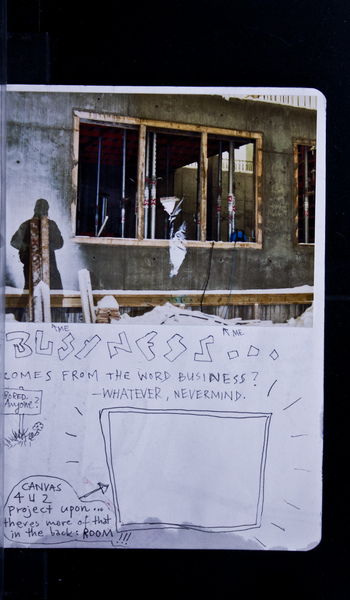 ME
ME
BUSYNESS...
COMES FROM THE WORD BUSINESS?
—WHATEVER, NEVERMIND.
BORED.
Anyone?
CANVAS
4 U 2
project upon...
theres more of that
in the back: ROOM
!!!